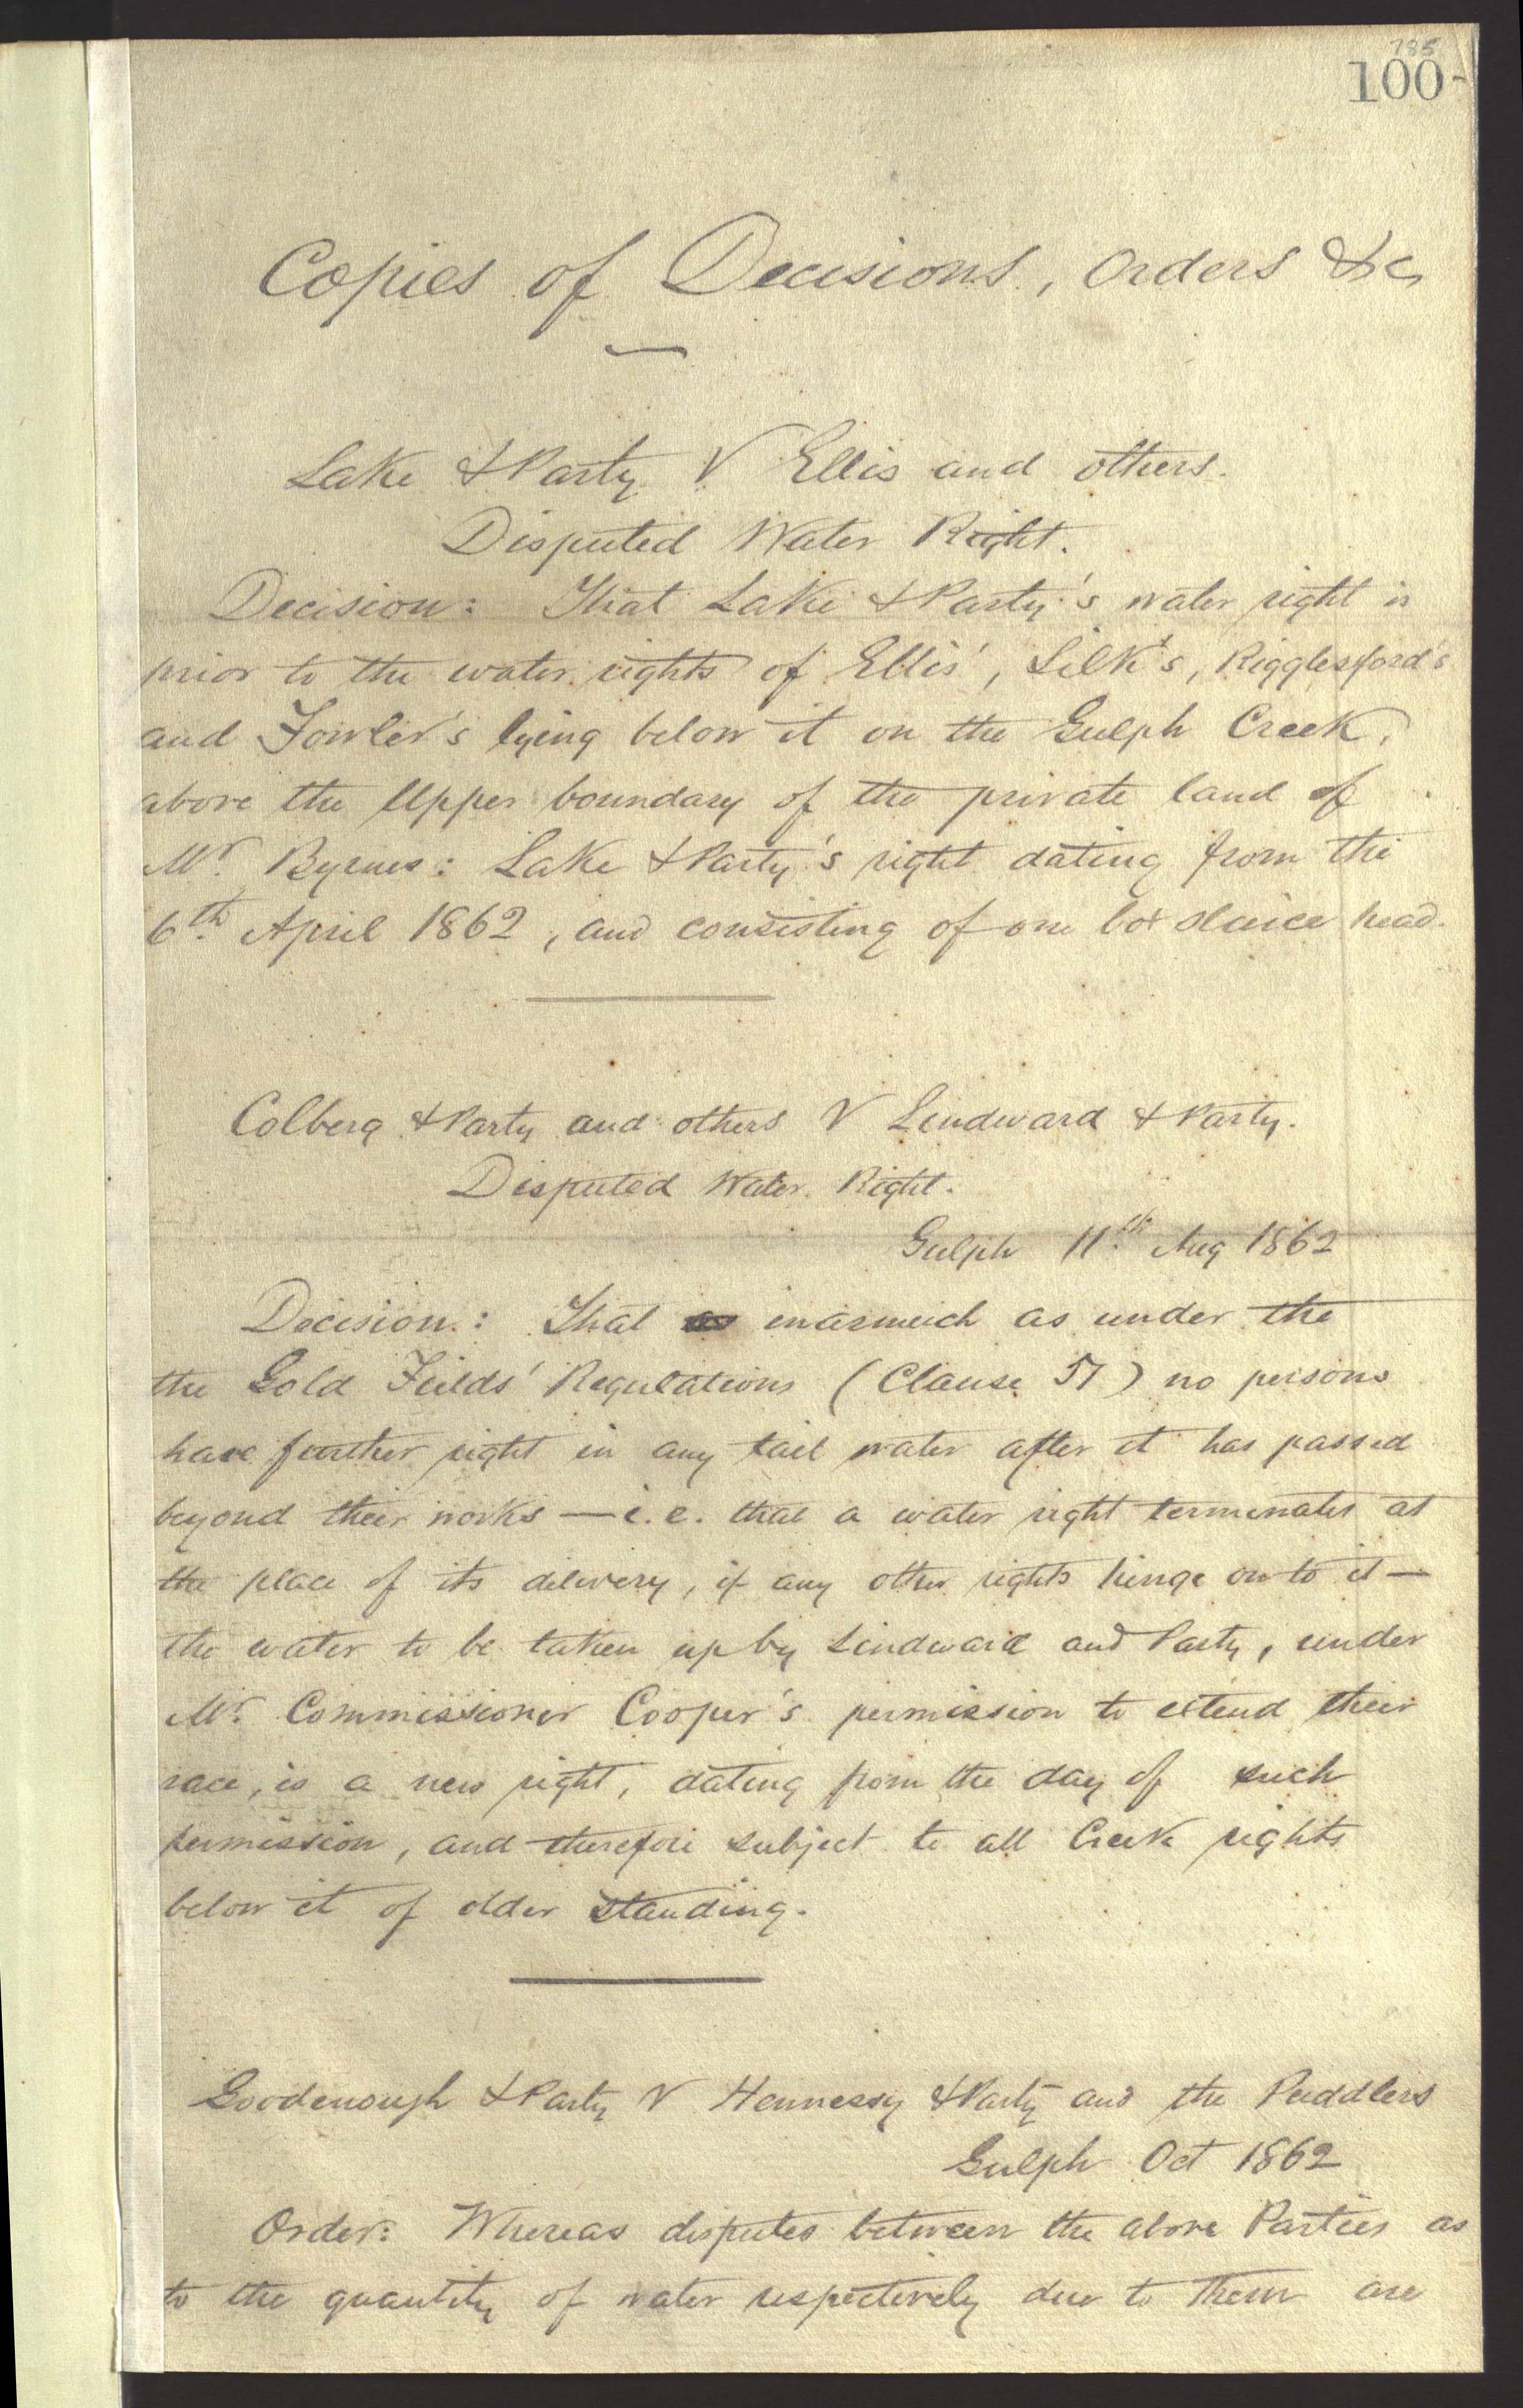 785
100-
Copies of Decisions, Orders &c
Lake & Party V Ellis and others.
Disputed Water Right.
Decision: That Lake & Party's water right is
prior to the water rights of Ellis', Silk's, Rigglesford's
and Fowler's lying below it on the Gulph Creek,
above the Upper boundary of the private land of
Mr. Byrnes: Lake & Party's right dating from the
6th April 1862, and consisting of one box sluice head.
Colberg & Party and others V Lindward & Party.
Disputed Water Right.
Gulph 11th Aug 1862
Decision: That inasmuch as under the
the Gold Fields' Regulations (Clause 57) no persons
have further right in any tail water after it has passed
beyond their works — i.e. that a water right terminates at
the place of its delivery, if any other rights hinge on to it —
the water to be taken up by Lindward and Party, under
Mr. Commissioner Cooper's permission to extend their
race, is a new right, dating from the day of such
permission, and therefore subject to all Creek rights
below it of older standing.
Goodenough & Party V Hennessy & Party and the Puddlers
Gulph Oct 1862
Order: Whereas disputes between the above Parties as
to the quantity of water respectively due to them are